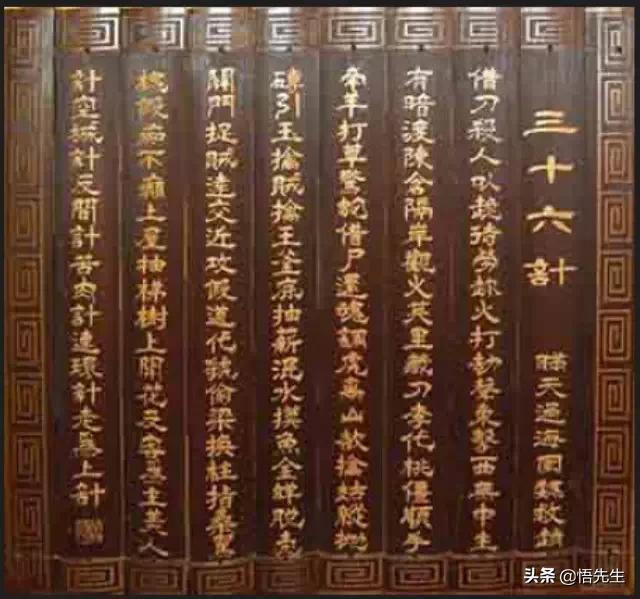 三十六計
瞞天過海圍魏救趙
借刀殺人以逸待勞趁火打劫聲東擊西無中生
有暗渡陳倉隔岸觀火笑里藏刀李代桃僵順手
牽羊打草驚蛇借尸還魂調虎离山欲擒姑縱拋
磚引玉擒賊擒王釜底抽薪混水摸魚金蟬脫壳
關門捉賊遠交近攻假道伐虢偷梁換柱指桑罵
槐假痴不癲上屋抽梯樹上開花反客為主美人
計空城計反間計苦肉計連環計走為上計
头条 @悟先生